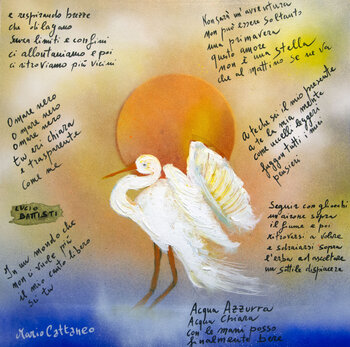 e respirando brezze
che dilagano
senza limiti e confini
ci allontaniamo e poi
ci ritroviamo più vicini
Non sarà un'avventura
non può essere soltanto
una primavera
questo amore
non è una stella
che al mattino se ne va
O mare nero
o mare nero
o mare nero
tu eri chiaro
e trasparente
come me
A te che sei il mio presente
a te la mia mente
come uccelli leggeri
fuggon tutti i miei
pensieri
LUCIO
BATTISTI
Seguir con gli occhi
un airone sopra
il fiume e poi
ritrovarsi a volare
e sdraiarsi sopra
l'erba ad ascoltare
un sottile dispiacere
In un mondo che
non ci vuole più
il mio canto libero
sei tu
Acqua Azzurra
Acqua Chiara
con le mani posso
finalmente bere
Mario Cattaneo